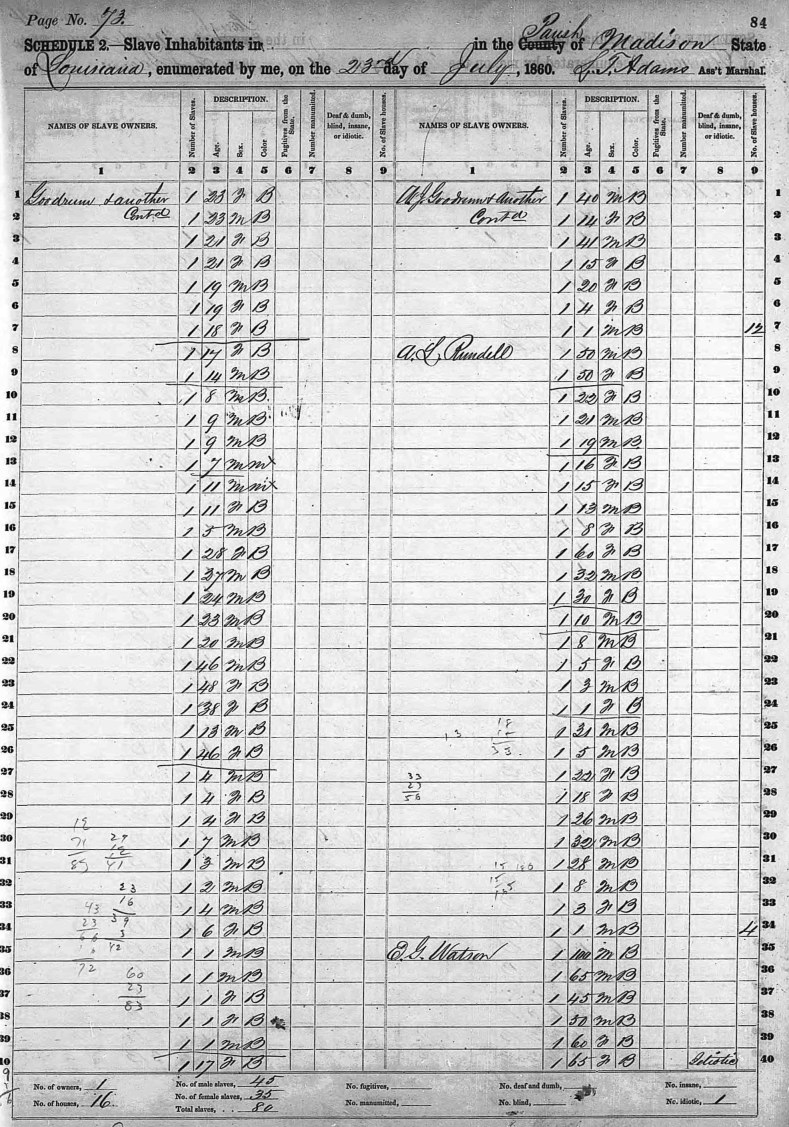 Page No. 73.
84
SCHEDULE 2.—Slave Inhabitants in in the County of Parish Madison State
of Louisiana, enumerated by me, on the 23rd day of July, 1860. L. T. Adams Ass't Marshal.
NAMES OF SLAVE OWNERS. Number of Slaves. DESCRIPTION. Age. Sex. Color Fugitives from the State. Number manumitted. Deaf & dumb, blind, insane, or idiotic. No. of Slave houses. NAMES OF SLAVE OWNERS. Number of Slaves. DESCRIPTION. Age. Sex. Color. Fugitives from the State. Number manumitted. Deaf & dumb, blind, insane, or idiotic. No. of Slave houses.
1 2 3 4 5 6 7 8 9 1 2 3 4 5 6 7 8 9
1 Goodrum & another 1 23 F B A. J. Goodrum & Another 1 40 M B 1
2 Cont'd 1 23 M B Cont'd 1 14 F B 2
3 1 21 F B 1 41 M B 3
4 1 21 F B 1 15 F B 4
5 1 19 M B 1 20 F B 5
6 1 19 F B 1 4 F B 6
7 1 18 F B 1 1 M B 12 7
8 1 17 F B A. L. Rundell 1 50 M B 8
9 1 14 M B 1 50 F B 9
10 1 8 M B 1 22 F B 10
11 1 9 M B 1 21 M B 11
12 1 9 M B 1 19 M B 12
13 1 7 M mx 1 16 F B 13
14 1 11 M mx 1 15 F B 14
15 1 11 F B 1 13 M B 15
16 1 5 M B 1 8 F B 16
17 1 28 F B 1 60 F B 17
18 1 37 M B 1 32 M B 18
19 1 24 M B 1 30 F B 19
20 1 23 M B 1 10 M B 20
21 1 20 M B 1 8 M B 21
22 1 46 M B 1 5 F B 22
23 1 48 F B 1 3 M B 23
24 1 38 F B 1 1 F B 24
25 1 13 M B 1 31 M B 25
26 1 46 F B 1 5 M B 26
27 1 4 M B 1 22 F B 27
28 1 4 F B 1 18 F B 28
29 1 4 F B 1 26 M B 29
30 1 7 M B 1 32 M B 30
31 1 3 M B 1 28 M B 31
32 1 2 M B 1 8 M B 32
33 1 4 M B 1 3 F B 33
34 1 6 F B 1 1 M B 4 34
35 1 1 M B E. G. Watson 1 100 M B 35
36 1 1 M B 1 65 M B 36
37 1 1 F B 1 45 M B 37
38 1 1 F B 1 50 M B 38
39 1 1 M B 1 60 F B 39
40 1 17 F B 1 65 F B Idiotic 40
No. of owners, 1 No. of male slaves, 45 No. fugitives, No. of deaf and dumb, No. of insane,
No. of houses, 16 No. of female slaves, 35 No. manumitted, No. of blind, No. idiotic, 1
Total slaves, 80